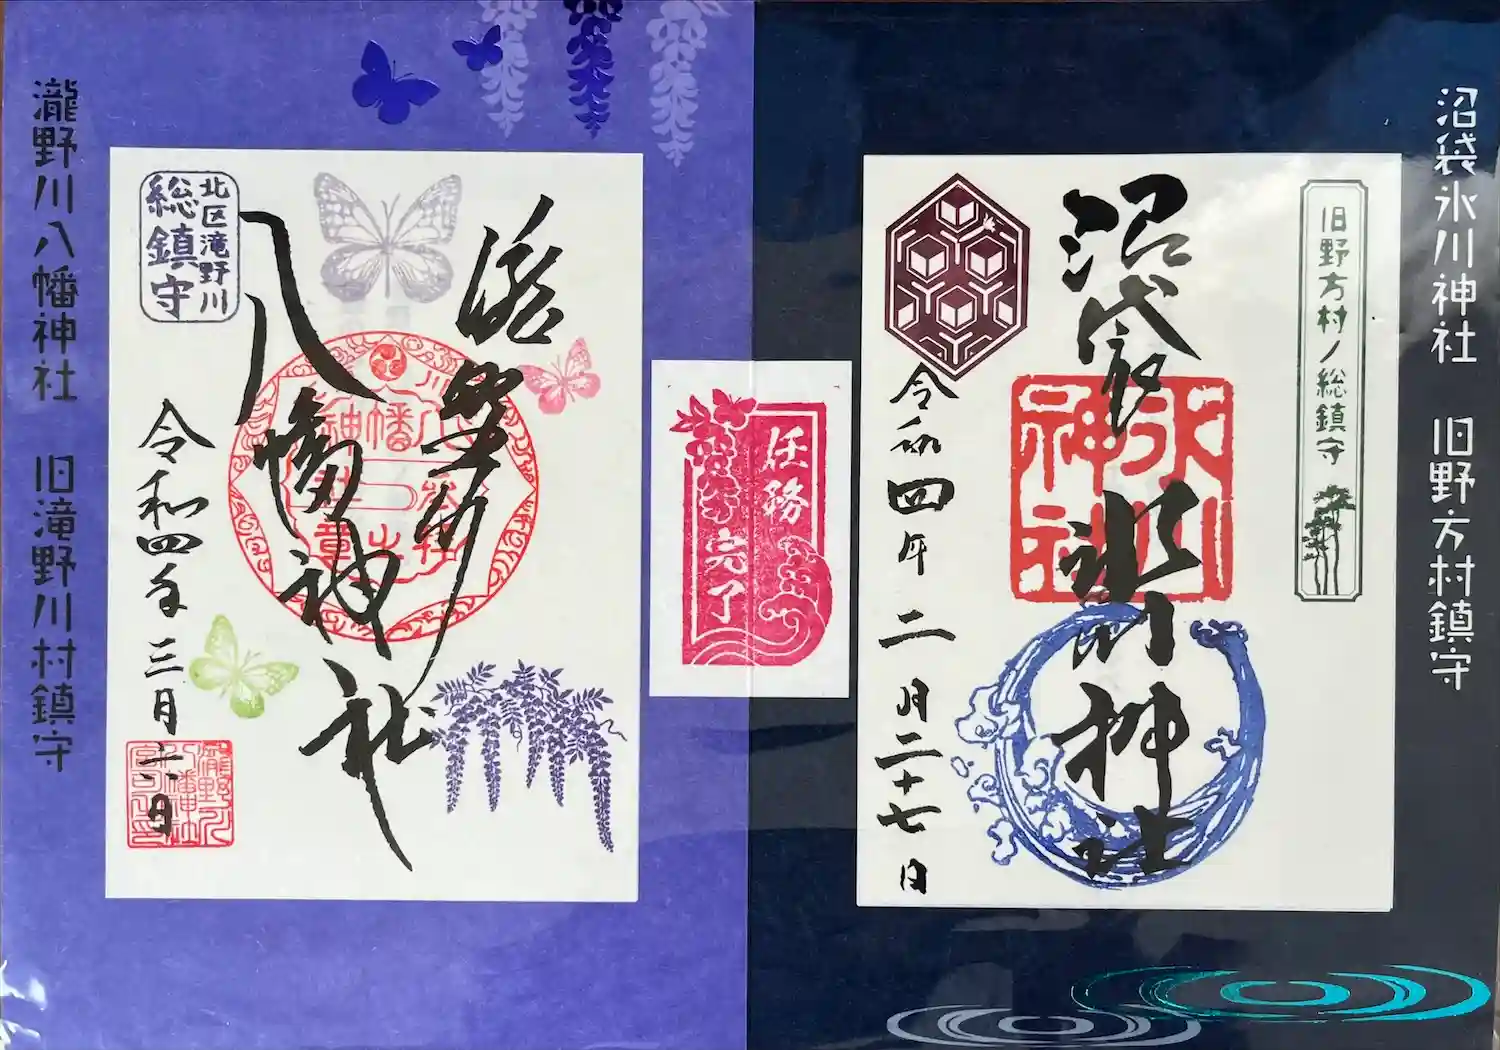 沼袋氷川神社 旧野方村鎮守
旧野方村ノ総鎮守
沼袋
氷川神社
氷川
神社
令和四年二月二十七日
任務
完了
滝野川
八幡神社
北区滝野川
総鎮守
令和四年三月六日
瀧野川八幡神社 旧滝野川村鎮守